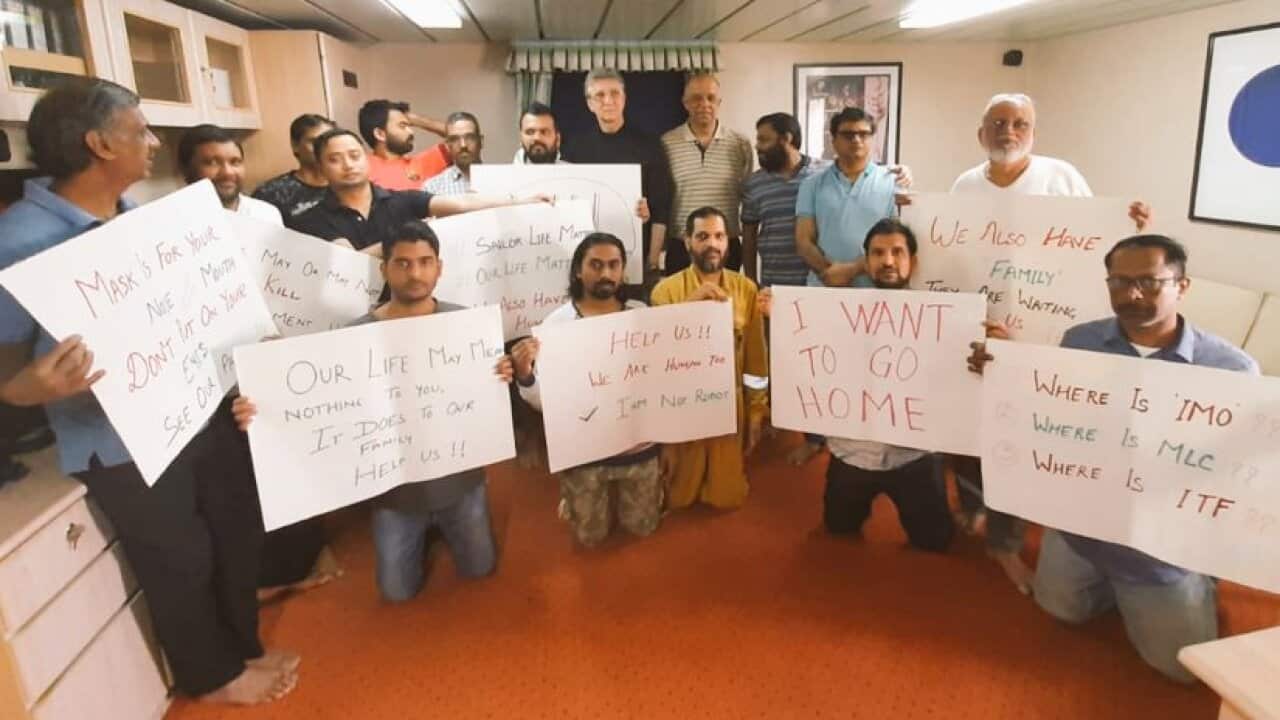 MASK IS FOR YOUR
NOE // MOUTH
DON'T PUT ON YOUR
EYES
SEE OUR
MAY OR MAY NOT
KILL
SAILOR LIFE
OUR LIFE MATT
ALSO HAVE
OUR LIFE MAY MEA
NOTHING TO YOU,
IT DOES TO OUR
FAMILY
HELP US !!
HELP US !!
WE ARE HUMAN TOO
✓ I AM NOT ROBOT
I WANT
TO GO
HOME
WE ALSO HAVE
FAMILY
THEY ARE WAITING
US
① WHERE IS 'IMO' ??
② WHERE IS MLC ??
③ WHERE IS ITF ??